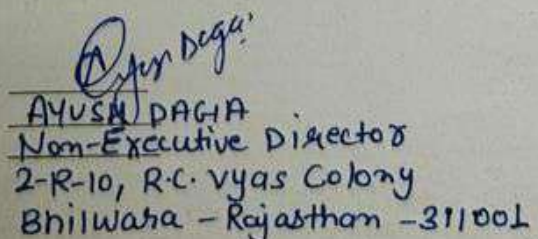 Ayush Daga
AYUSH DAGA
Non-Executive Director
2-R-10, R.C. Vyas Colony
Bhilwara - Rajasthan - 311001